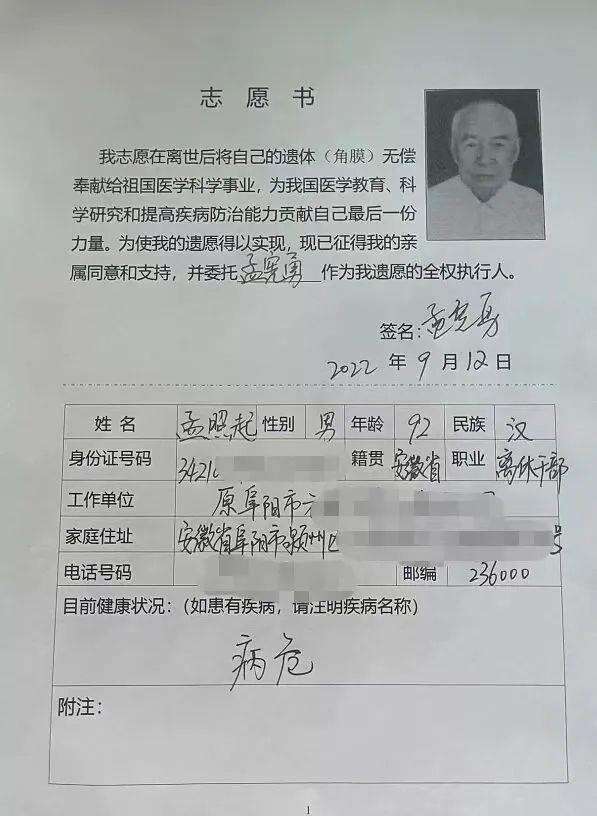 志愿书
我志愿在离世后将自己的遗体（角膜）无偿
奉献给祖国医学科学事业，为我国医学教育、科
学研究和提高疾病防治能力贡献自己最后一份
力量。为使我的遗愿得以实现，现已征得我的亲
属同意和支持，并委托孟宪勇作为我遗愿的全权执行人。
签名：孟宪勇
2022年9月12日
姓名 孟照起 性别 男 年龄 92 民族 汉
身份证号码 3421 籍贯 安徽省 职业 离休干部
工作单位 原阜阳市
家庭住址 安徽省阜阳市颍州 号
电话号码 邮编 236000
目前健康状况：（如患有疾病，请注明疾病名称）
病危
附注：
1